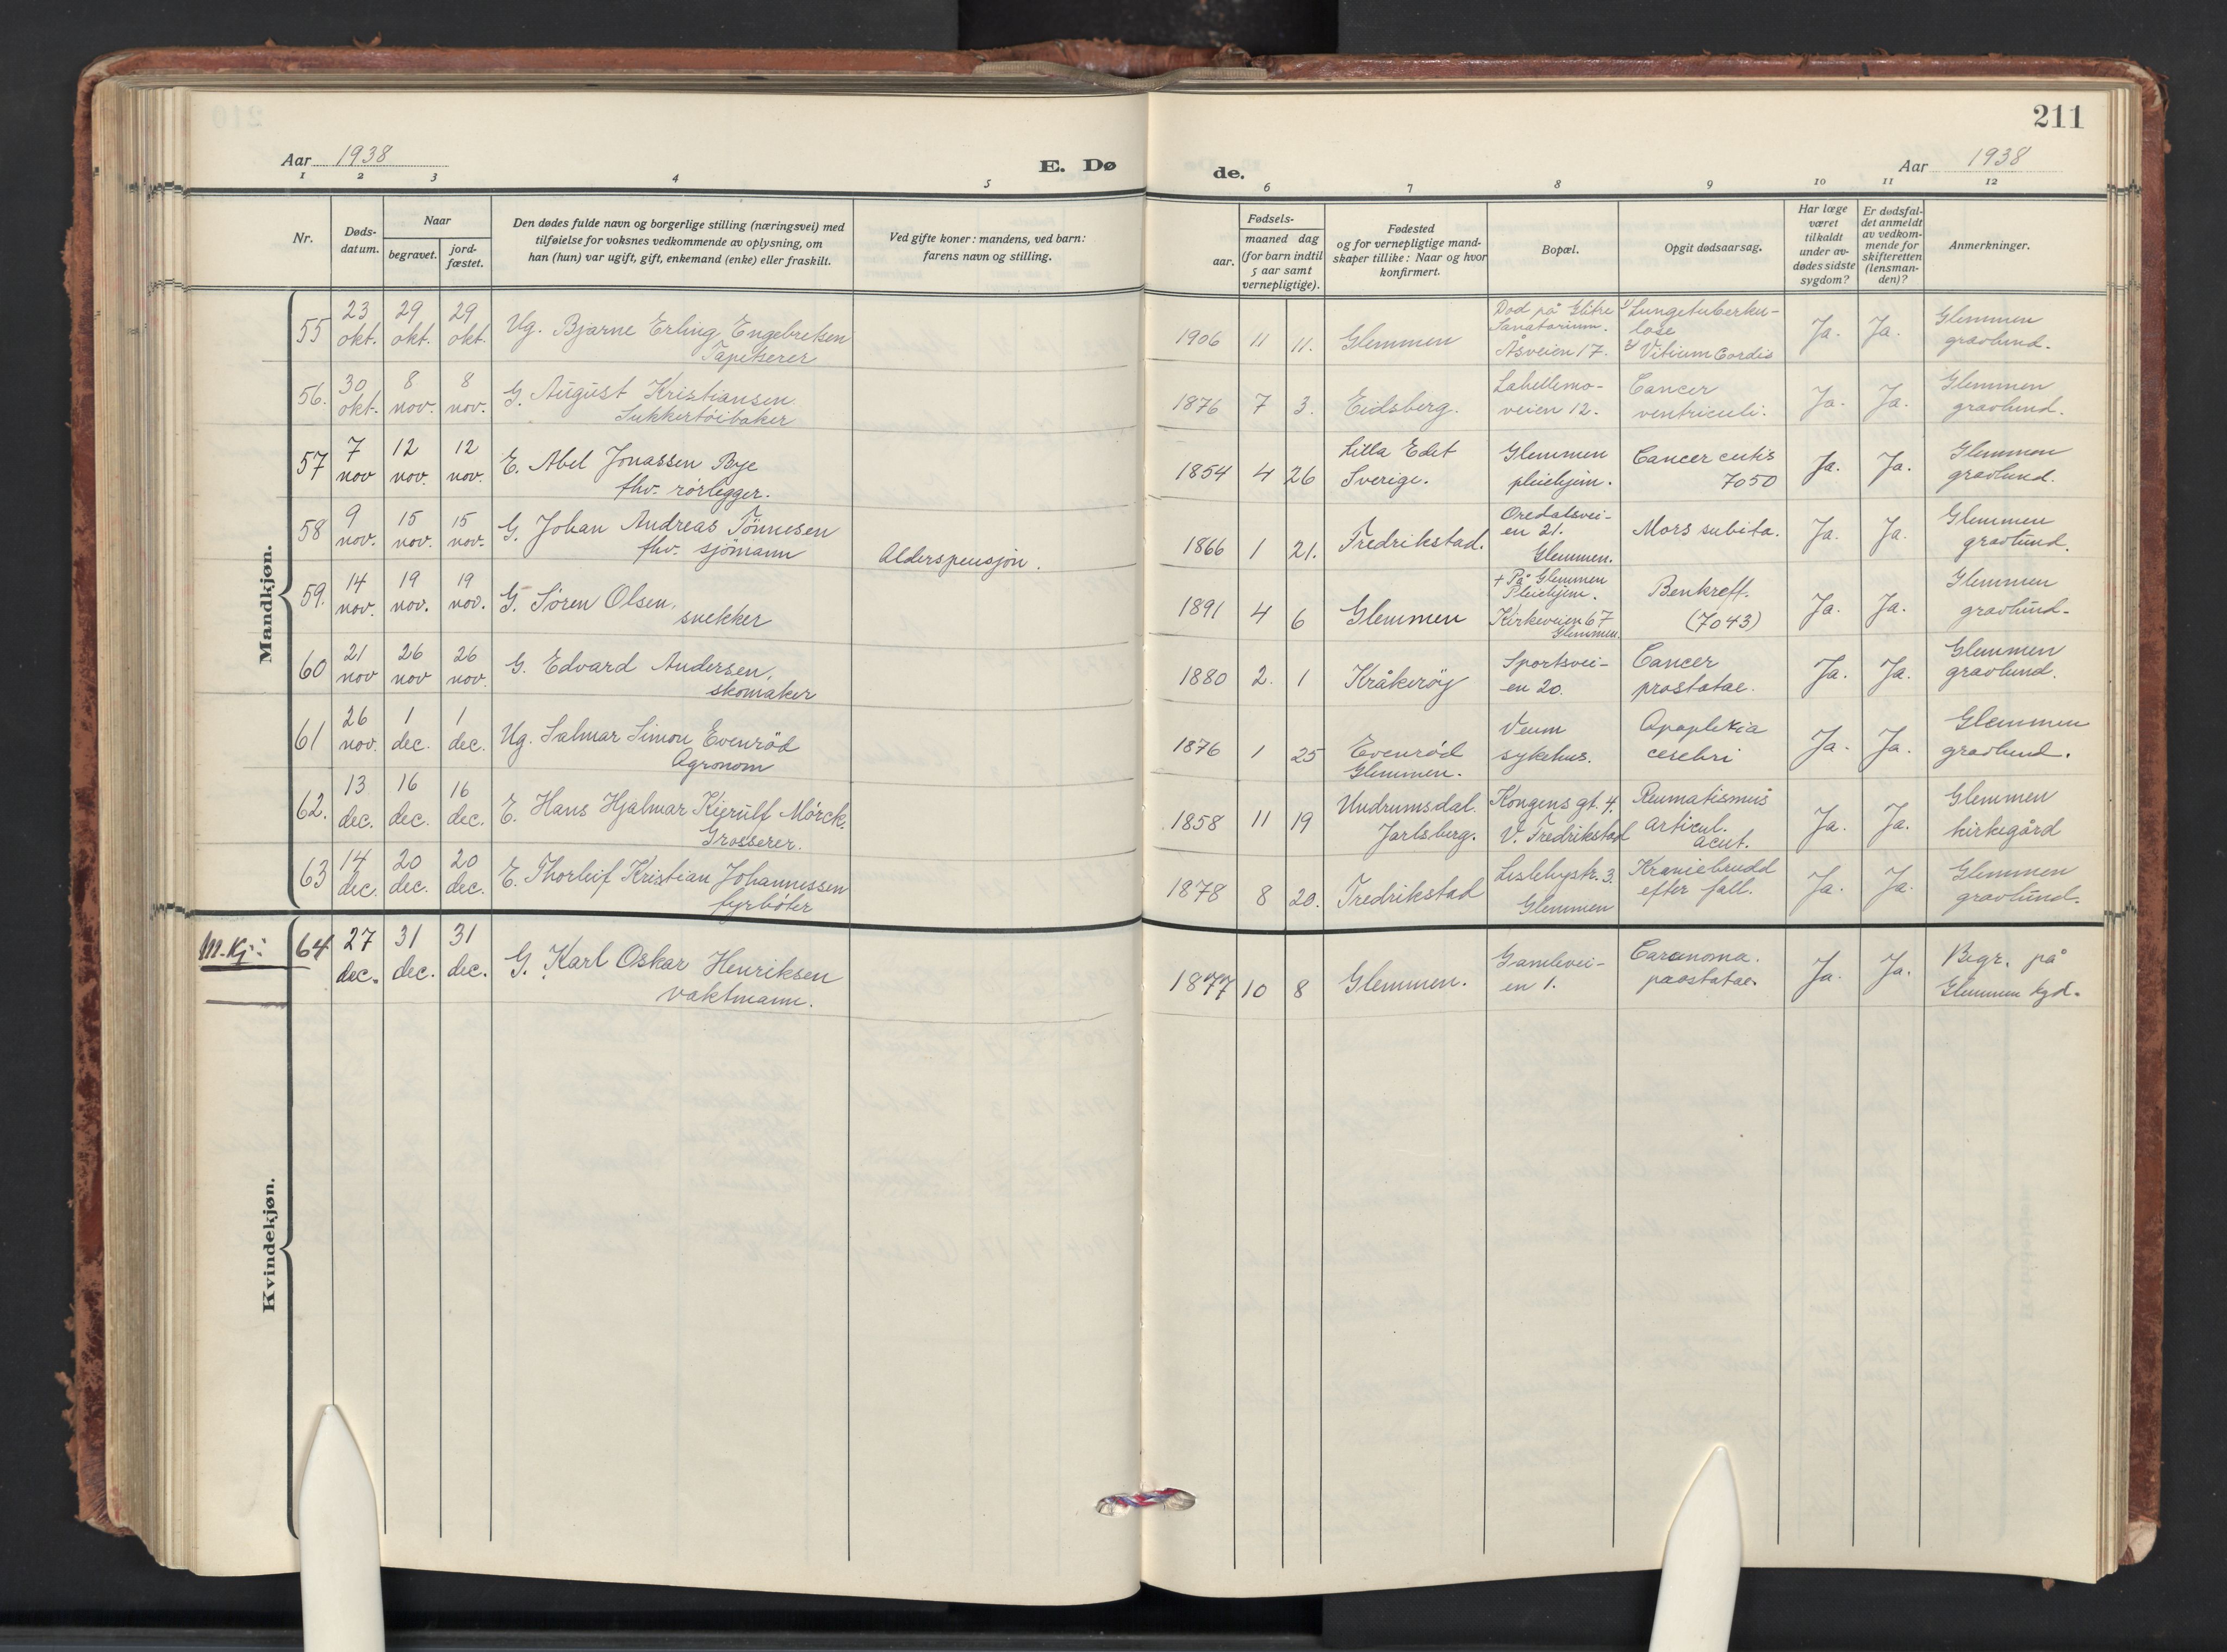 211
Aar 1938
E. Dø
de.
Aar 1938
1 2 3 4 5
6 7 8 9 10 11 12
Nr.
Døds-
datum.
Naar
begravet.
jord-
fæstet.
Den dødes fulde navn og borgerlige stilling (næringsvei) med
tilføielse for voksnes vedkommende av oplysning, om
han (hun) var ugift, gift, enkemand (enke) eller fraskilt.
Ved gifte koner: mandens, ved barn:
farens navn og stilling.
Fødsels-
aar.
maaned dag
(for barn indtil
5 aar samt
vernepligtige).
Fødested
og for vernepligtige mand-
skaper tillike: Naar og hvor
konfirmert.
Bopæl.
Opgit dødsaarsag.
Har læge
været
tilkaldt
under av-
dødes sidste
sygdom?
Er dødsfal-
det anmeldt
av vedkom-
mende for
skifteretten
(lensman-
den)?
Anmerkninger.
Mandkjøn.
55
23
okt.
29
okt.
29
okt.
Ug. Bjarne Erling Engebretsen
Tapetserer
1906 11 11. Glemmen
Død på Glitre
Sanatorium.
Åsveien 17.
1) Lungetuberku-
lose
2) Vitium Cordis
Ja. Ja.
Glemmen
gravlund.
56.
30
okt.
8
nov.
8
nov.
G. August Kristiansen
Sukkertöibaker
1876 7 3. Eidsberg.
Labellemo-
veien 12.
Cancer
ventriculi.
Ja. Ja.
Glemmen
gravlund.
57
7
nov
12
nov.
12
nov.
E. Abel Jonassen Bye
fhv. rörlegger.
1854 4 26
Lilla Edet
Sverige.
Glemmen
pleiehjem.
Cancer cutis
7050
Ja. Ja.
Glemmen
gravlund.
58
9
nov.
15
nov.
15
nov.
G. Johan Andreas Tönnesen
fhv. sjömann
Alderspensjon.
1866 1 21. Fredrikstad.
Oredalsvei-
en 21.
Glemmen.
Mors subita.
Ja. Ja.
Glemmen
gravlund.
59.
14
nov.
19
nov.
19
nov.
G. Sören Olsen,
snekker
1891 4 6 Glemmen
+ På Glemmen
Pleiehjem.
Kirkeveien 67
Glemmen.
Benkreft.
(7043)
Ja. Ja.
Glemmen
gravlund.
60
21
nov
26
nov
26
nov.
G. Edvard Andersen,
skomaker
1880 2. 1 Kråkeröy
Sportsvei-
en 20.
Cancer
prostatae.
Ja. Ja.
Glemmen
gravlund.
61
26
nov.
1
dec.
1
dec.
Ug. Salmar Simon Evenröd
Agronom
1876 1 25
Evenröd
Glemmen.
Veum
sykehus.
Apoplexia
cerebri
Ja. Ja.
Glemmen
gravlund.
62.
13
dec.
16
dec.
16
dec.
E. Hans Hjalmar Kierulf Mörck.
Grosserer.
1858 11 19
Undrumsdal.
Jarlsberg.
Kongens gt. 4,
V. Fredrikstad
Reumatismus
articul.
acut.
Ja. Ja.
Glemmen
kirkegård
63
14
dec.
20
dec.
20
dec.
E. Thorleif Kristian Johannessen
fyrböter
1878 8 20. Fredrikstad
Lislebystr. 3.
Glemmen
Kraniebrudd
efter fall.
Ja. Ja.
Glemmen
gravlund.
M. Kj:
64
27
dec.
31
dec.
31
dec.
G. Karl Oskar Henriksen
vaktmann.
1877 10 8 Glemmen.
Gamlevei-
en 1.
Carcinoma.
prostatae.
Ja. Ja.
Begr. på
Glemmen kgd.
Kvindekjøn.